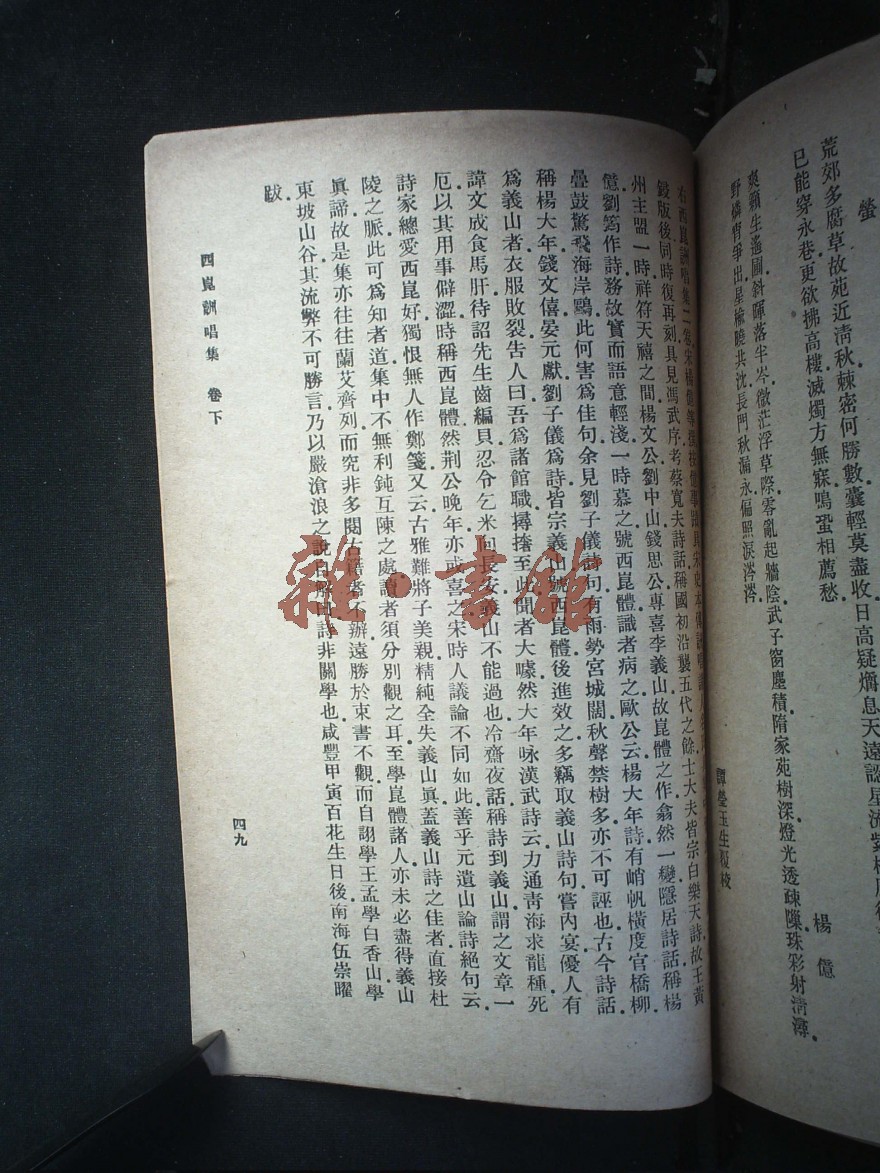 螢
楊億
荒郊多腐草故苑近清秋棘密何勝數囊輕莫盡收日高疑爝息天遠認星流紫
已能穿永巷更欲拂高樓滅燭方無寐鳴蛩相薦愁
爽籟生遙圃斜暉落半岑微茫浮草際零亂起牆陰武子窗塵積隋家苑樹深燈光透疎隟珠彩射清潯
野燐宵爭出星楡曉共沈長門秋漏永偏照淚涔涔
譚瑩玉生覆校
右西崑詶唱集二卷宋楊億等撰按億事蹟具宋史本傳
鋟版後同時復再刻具見馮武序考蔡寬夫詩話稱國初沿襲五代之餘士大夫皆宗白樂天詩故王黃
州主盟一時祥符天禧之間楊文公劉中山錢思公專喜李義山故崑體之作翕然一變隱居詩話稱楊
億劉筠作詩務故實而語意輕淺一時慕之號西崑體識者病之歐公云楊大年詩有峭帆橫度官橋柳
疊鼓驚飛海岸鷗此何害爲佳句余見劉子儀詩句有雨勢宮城闊秋聲禁樹多亦不可誣也古今詩話
稱楊大年錢文僖晏元獻劉子儀爲詩皆宗義山號西崑體後進效之多竊取義山詩句嘗內宴優人有
爲義山者衣服敗裂吿人曰吾爲諸館職撏撦至此聞者大噱然大年咏漢武詩云力通靑海求龍種死
諱文成食馬肝待詔先生齒編貝忍令乞米向長安義山不能過也冷齋夜話稱詩到義山謂之文章一
厄以其用事僻澀時稱西崑體然荆公晚年亦或喜之宋時人議論不同如此善乎元遺山論詩絕句云
詩家總愛西崑好獨恨無人作鄭箋又云古雅難將子美親精純全失義山眞蓋義山詩之佳者直接杜
陵之脈此可爲知者道集中不無利鈍互陳之處讀者須分別觀之耳至學崑體諸人亦未必盡得義山
眞諦故是集亦往往蘭艾齊列而究非多閱古籍者不辦遠勝於束書不觀而自詡學王孟學白香山學
東坡山谷其流弊不可勝言乃以嚴滄浪之說自解曰詩非關學也咸豐甲寅百花生日後南海伍崇曜
跋
西崑詶唱集 卷下
四九
雜·書館